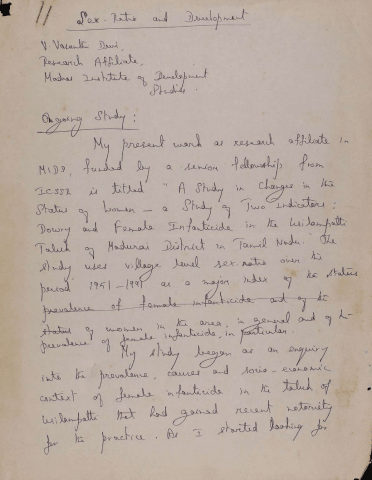 Sex-Ratio and Development
V. Vasanthi Devi,
Research Affiliate,
Madras Institute of Development
Studies.
Ongoing Study:
My present work as research affiliate in
MIDS, funded by a senior fellowship from
ICSSR is titled "A Study in Changes in the
Status of Women – a Study of Two Indicators:
Dowry and Female Infanticide in the Usilampatti
Taluk of Madurai District in Tamil Nadu. The
study uses village level sex-ratio over the
period 1951-1991 as a major index of the status
prevalence of female infanticide and of the
status of women in the area, in general and of the
prevalence of female infanticide, in particular.
My study began as an enquiry
into the prevalence, causes and socio-economic
context of female infanticide in the taluk of
Usilampatti that had gained recent notoriety
for the practice. As I started looking for